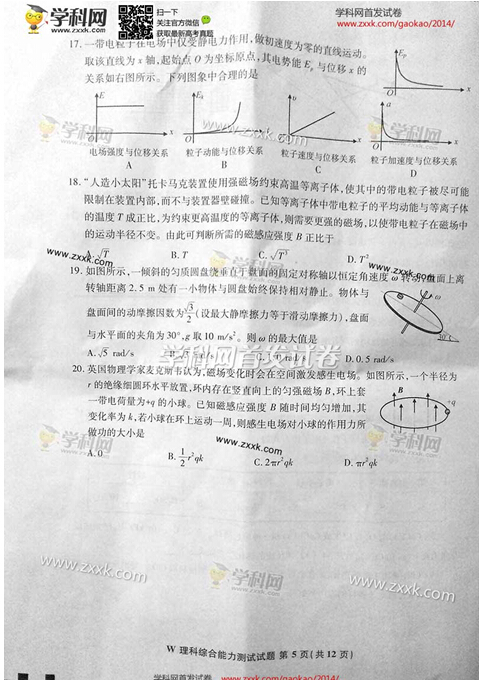 学科网
www.zxxk.com
扫一下
关注官方微信
获取最新高考真题
学科网首发试卷
www.zxxk.com/gaokao/2014/
17.一带电粒子在电场中仅受静电力作用,做初速度为零的直线运动。
取该直线为 x 轴,起始点 O 为坐标原点,其电势能 Ep 与位移 x 的
关系如右图所示。下列图象中合理的是
Ep
x
E
x
Ek
x
v
x
a
x
O
电场强度与位移关系
粒子动能与位移关系
粒子速度与位移关系
粒子加速度与位移关系
A
B
C
D
18.“人造小太阳”托卡马克装置使用强磁场约束高温等离子体,使其中的带电粒子被尽可能
限制在装置内部,而不与装置器壁碰撞。已知等离子体中带电粒子的平均动能与等离子体
的温度 T 成正比,为约束更高温度的等离子体,则需要更强的磁场,以使带电粒子在磁场中
的运动半径不变。由此可判断所需的磁感应强度 B 正比于
A. √T
B. T
C. √T³
D. T²
19.如图所示,一倾斜的匀质圆盘绕垂直于盘面的固定对称轴以恒定角速度 ω 转动,盘面上离
转轴距离 2.5 m 处有一小物体与圆盘始终保持相对静止。物体与
盘面间的动摩擦因数为 √3/2 (设最大静摩擦力等于滑动摩擦力),盘面
与水平面的夹角为 30°,g 取 10 m/s²。则 ω 的最大值是
A. √5 rad/s
rad/s
rad/s
D. 0.5 rad/s
ω
30°
20.英国物理学家麦克斯韦认为,磁场变化时会在空间激发感生电场。如图所示,一个半径为
r 的绝缘细圆环水平放置,环内存在竖直向上的匀强磁场 B,环上套
一带电荷量为+q 的小球。已知磁感应强度 B 随时间均匀增加,其
变化率为 k,若小球在环上运动一周,则感生电场对小球的作用力所
做功的大小是
B
+q
A. 0
B. 1/2 r²qk
C. 2πr²qk
D. πr²qk
W 理科综合能力测试试题 第 5 页(共 12 页)
学科网首发试卷
www.zxxk.com/gaokao/2014/